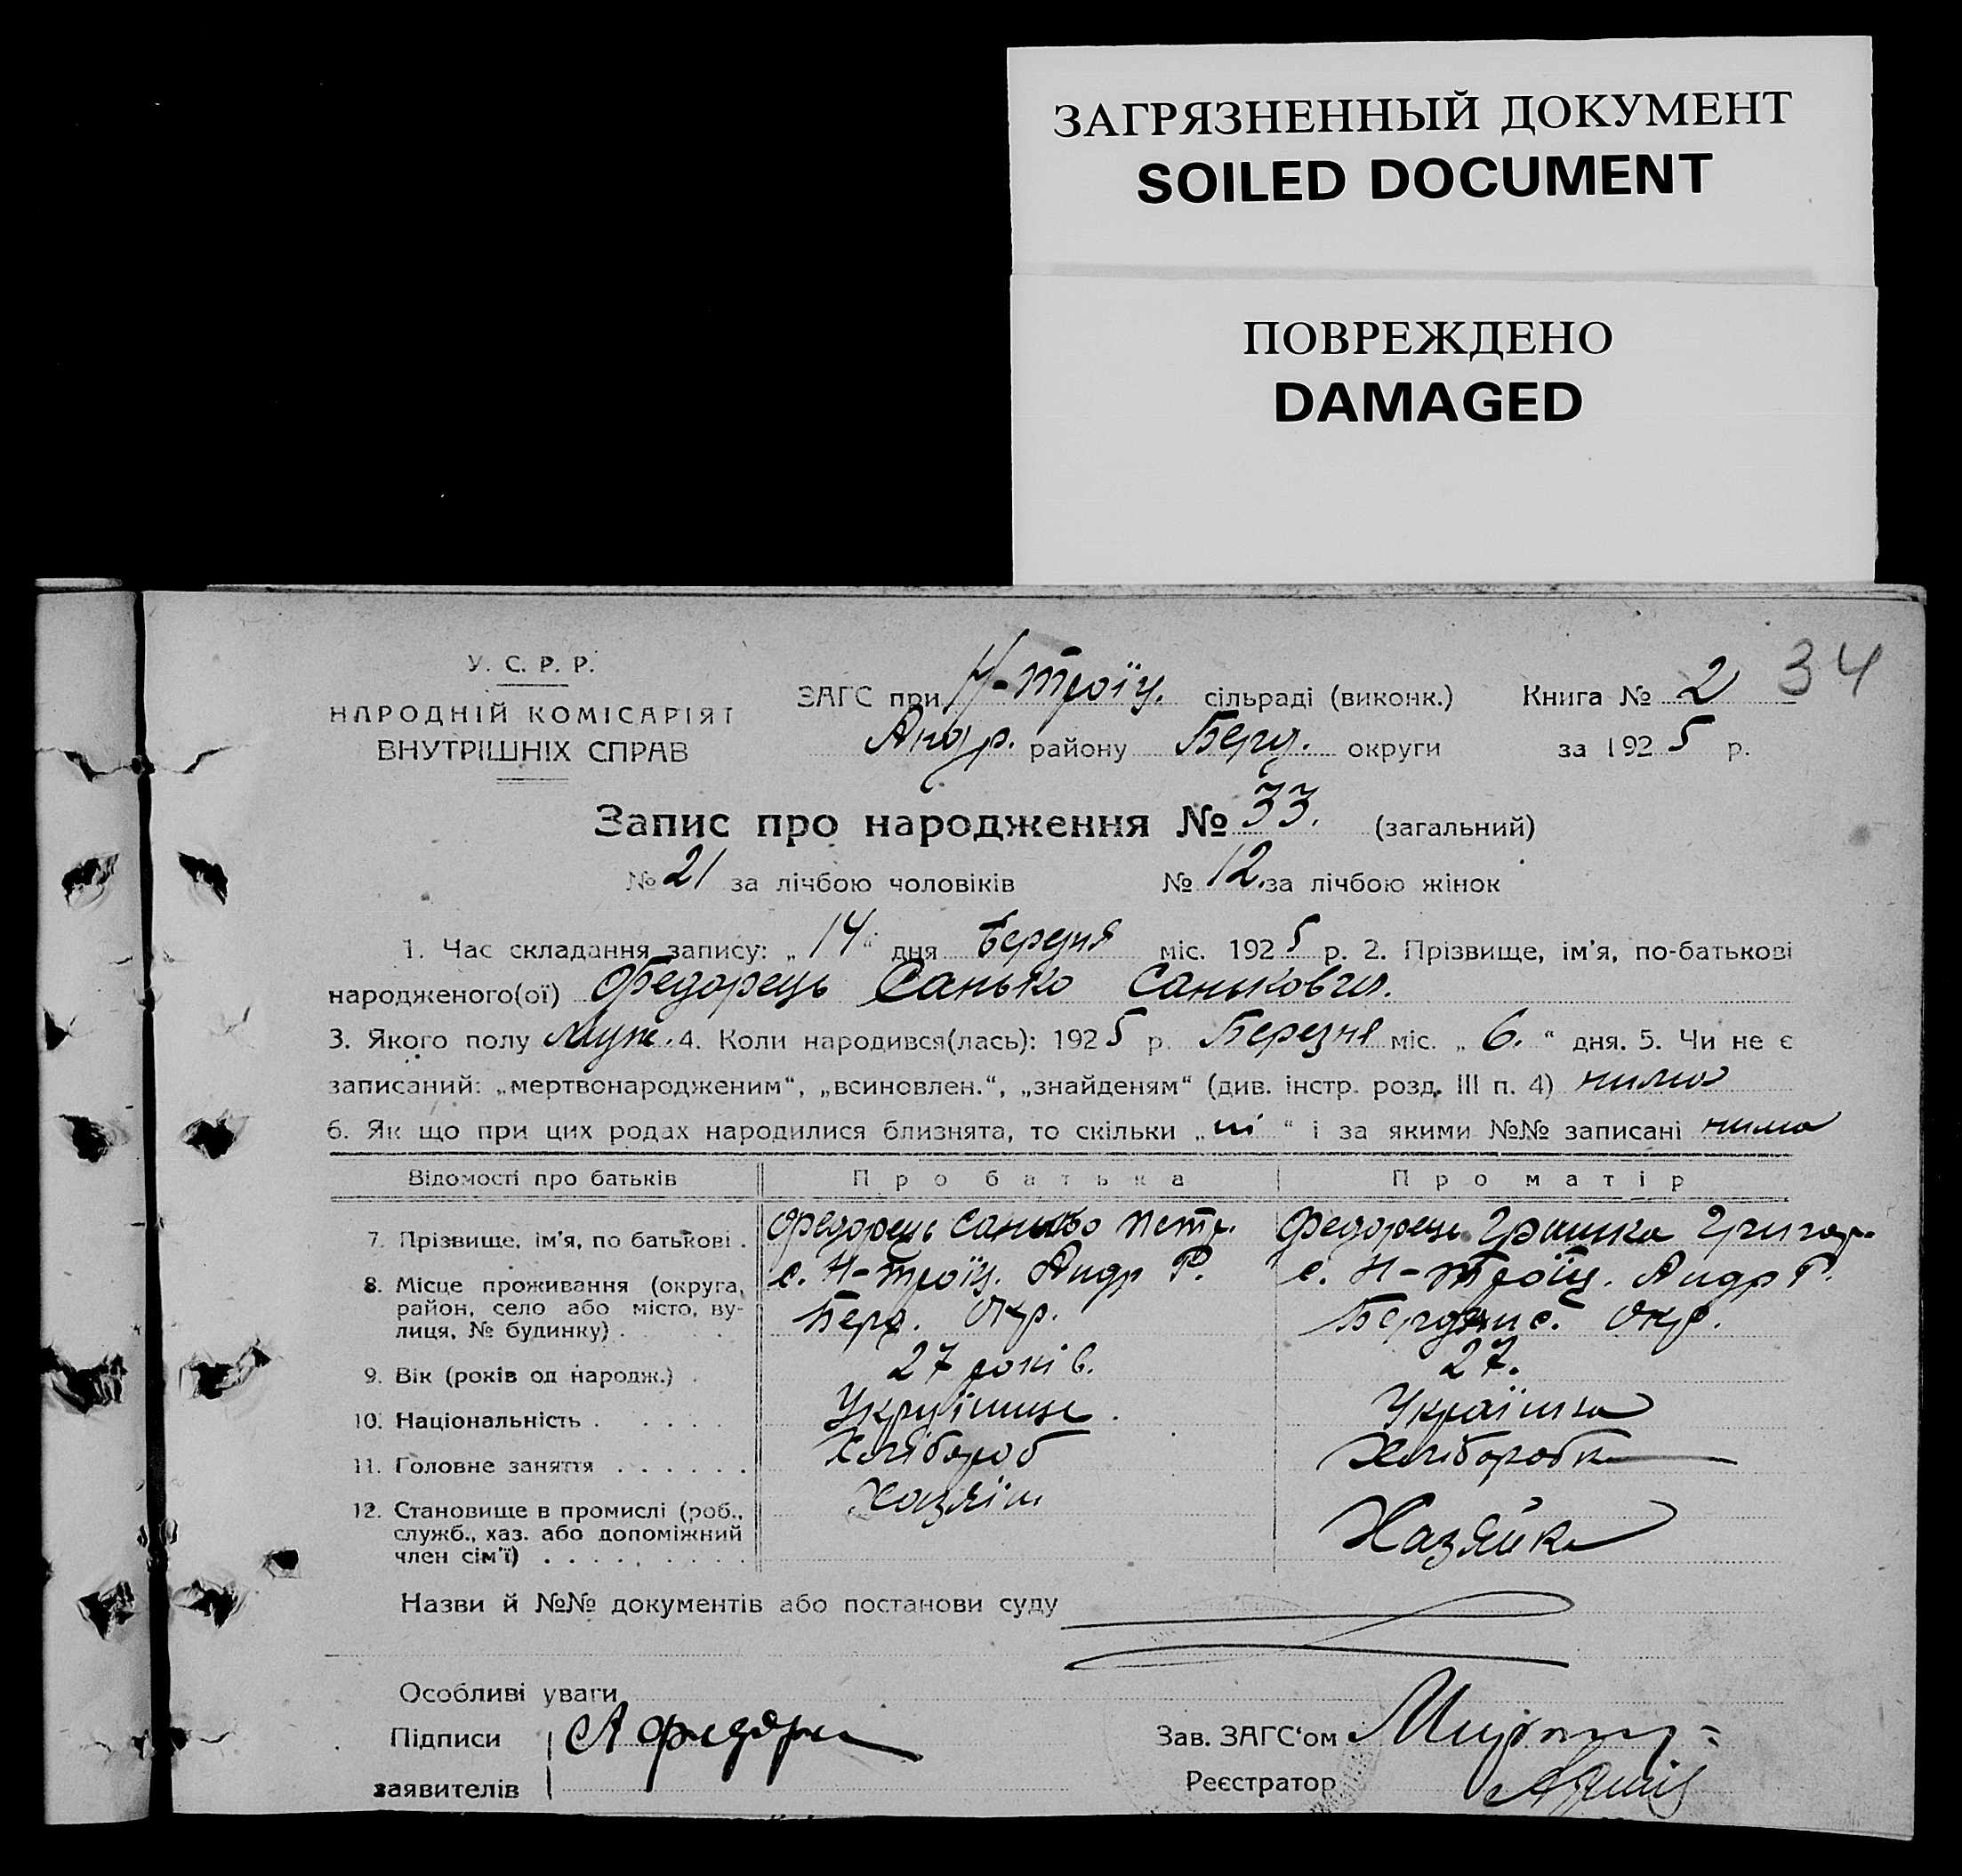 ЗАГРЯЗНЕННЫЙ ДОКУМЕНТ
SOILED DOCUMENT
ПОВРЕЖДЕНО
DAMAGED
34
У. С. Р. Р.
НАРОДНІЙ КОМІСАРІЯТ
ВНУТРІШНІХ СПРАВ
ЗАГС при Н-Троїц. сільраді (виконк.) Книга № 2
Андр. району Берд. округи за 1925 р.
Запис про народження № 33. (загальний)
№ 21 за лічбою чоловіків № 12. за лічбою жінок
1. Час складання запису: „14“ дня міс. 1925 р. 2. Прізвище, ім'я, по-батькові
народженого(ої) Федорець Санько Санькович.
3. Якого полу Муж. 4. Коли народився(лась): 1925 р. Березня міс. „6.“ дня. 5. Чи не є
записаний: „мертвонародженим“, „всиновлен.“, „знайденям“ (див. інстр. розд. III п. 4) нима
6. Як що при цих родах народилися близнята, то скільки „ні“ і за якими №№ записані нима
Відомості про батьків Про батька Про матір
7. Прізвище, ім'я, по батькові . Федорець Санько Петр. Федорець Григор.
8. Місце проживання (округа, район, село або місто, ву- лиця, № будинку) . с. Н-Троїц. Андр Р. с. Н-Троїц. Андр Р.
Берд. Окр. Бердянс. Окр.
9. Вік (років од народж.) . 27 років. 27.
10. Національність . . . . . Українець. Українка
11. Головне заняття . . . . . . Хлібороб Хліборобка
12. Становище в промислі (роб., служб., хаз. або допоміжний член сім'ї) . . . . . . . . . Хазяїн Хазяйка
Назви й №№ документів або постанови суду
Особливі уваги
Підписи А Федоре
заявителів
Зав. ЗАГС'ом
Реєстратор